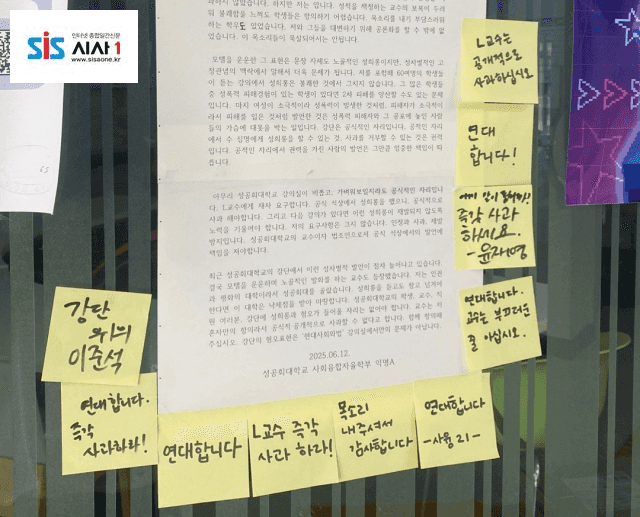 인터넷 종합일간신문
SIS 시사1
www.sisaone.kr
과하지 않았습니다. 하지만 저는 압니다. 성적을 책정하는 교수의 보복이 두려
워 불쾌함을 느껴도 학생들은 항의하기 어렵습니다. 목소리를 내기 부담스러워
하는 학우도 있었습니다. 저와 그들을 대변하기 위해 공론화를 할 수 밖에 없
었습니다. 이 목소리들이 묵살되어서는 안됩니다.
모텔을 운운한 그 표현은 문장 자체도 노골적인 성희롱이지만, 성차별적인 고
정관념의 맥락에서 말해서 더욱 문제가 됩니다. 저를 포함해 60여명의 학생들
이 듣는 강의에서 성희롱은 불쾌한 것에서 그치지 않습니다. 그 많은 학생들
중 성폭력 피해경험이 있는 학생이 있다면 2차 피해를 양산할 수도 있는 문제
입니다. 마치 여성이 소극적이라 성폭력이 발생한 것처럼, 피해자가 소극적이
라서 피해를 입은 것처럼 발언한 것은 성폭력 피해자와 그 공포에 놓인 사람
들의 가슴에 대못을 박는 일입니다. 강단은 공식적인 자리입니다. 공적인 자리
에서 수 십명에게 성희롱을 할 수 있는 것, 사과를 거부할 수 있는 것은 권력
입니다. 공적인 자리에서 권력을 가진 사람의 발언은 그만큼 엄중한 책임이 따
릅니다.
아무리 성공회대학교 강의실이 비좁고, 가벼워보일지라도 공식적인 자리입니
다. L교수에게 재차 요구합니다. 공식 석상에서 성희롱을 했으니, 공식적으로
사과 해야합니다. 그리고 다음 강의가 있다면 이런 성희롱이 재발되지 않도록
노력을 기울여야 합니다. 저의 요구사항은 크지 않습니다. 인정과 사과, 재발
방지입니다. 성공회대학교의 교수이자 법조인으로서 공식 석상에서의 발언에
책임을 져야합니다.
최근 성공회대학교의 강단에서 이런 성차별적 발언이 점차 늘어나고 있습니다.
결국 모텔을 운운하며 노골적인 발화를 하는 교수도 등장했습니다. 저는 인권
과 평화의 대학이라서 성공회대를 골랐습니다. 성희롱을 듣고도 참고 넘겨야
한다면 이 대학은 낙제점을 받아 마땅합니다. 성공회대학교의 학생, 교수, 직
원 여러분. 강단에 성희롱과 혐오가 들어올 자리는 없어야 합니다. 교수는 저
혼자만의 항의라서 공식적 공개적으로 사과할 수 없다고 합니다. 함께 항의해
주십시오. 강단의 혐오표현은 '현대사회와법' 강의실에서만의 문제가 아닙니다.
2025.06.12.
성공회대학교 사회융합자율학부 익명A
L교수는
공개적으로
사과하십시오
연대
합니다!
즉각 사과
하세요.
-윤재영
연대합니다.
교수는 부끄러운
줄 아십시오.
강단
위의
이준석
연대합니다.
즉각
사과하라!
연대합니다
L교수 즉각
사과 하라!
목소리
내주셔서
감사합니다
연대합니다
-사융 21-